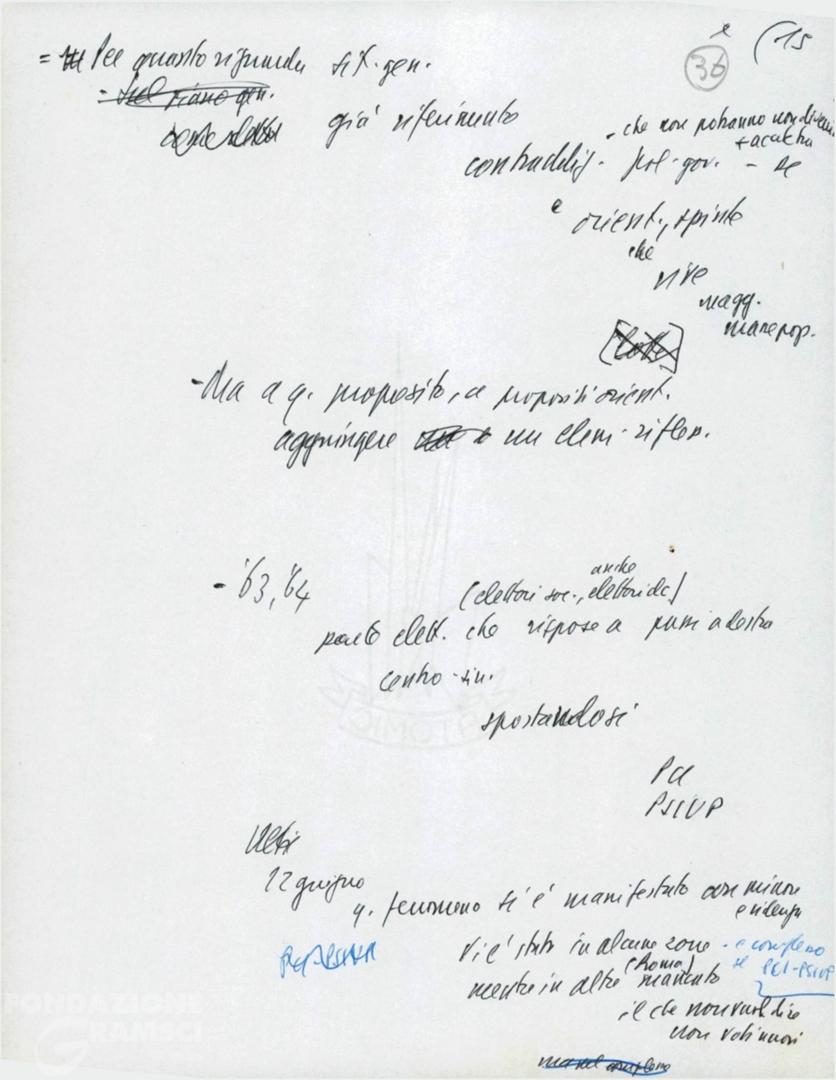 (15
36
= Per quanto riguarda sit. gen.
- Sul piano gen.
già riferimento
- che non potranno non divenire
+ acute tra
contraddiz. pol. gov. - se
e orient., spinte
che
vive
magg.
masse pop.
(lotte)
- Ma a q. proposito, a propositi orient.
aggiungere un elem. rifless.
- '63, '64
anche
(elettori soc., elettori dc)
parte elett. che rispose a passi a destra
centro-sin.
spostandosi
PCI
PSIUP
Ultir
12 giugno
q. fenomeno si è manifestato con minore
evidenza
PCI-PSIUP
vi è stato in alcune zone - e complesso
(Roma) se PCI-PSIUP
mentre in altre mancato
il che non vuol dire
non voti nuovi
ma nel complesso
FONDAZIONE
GRAMSCI